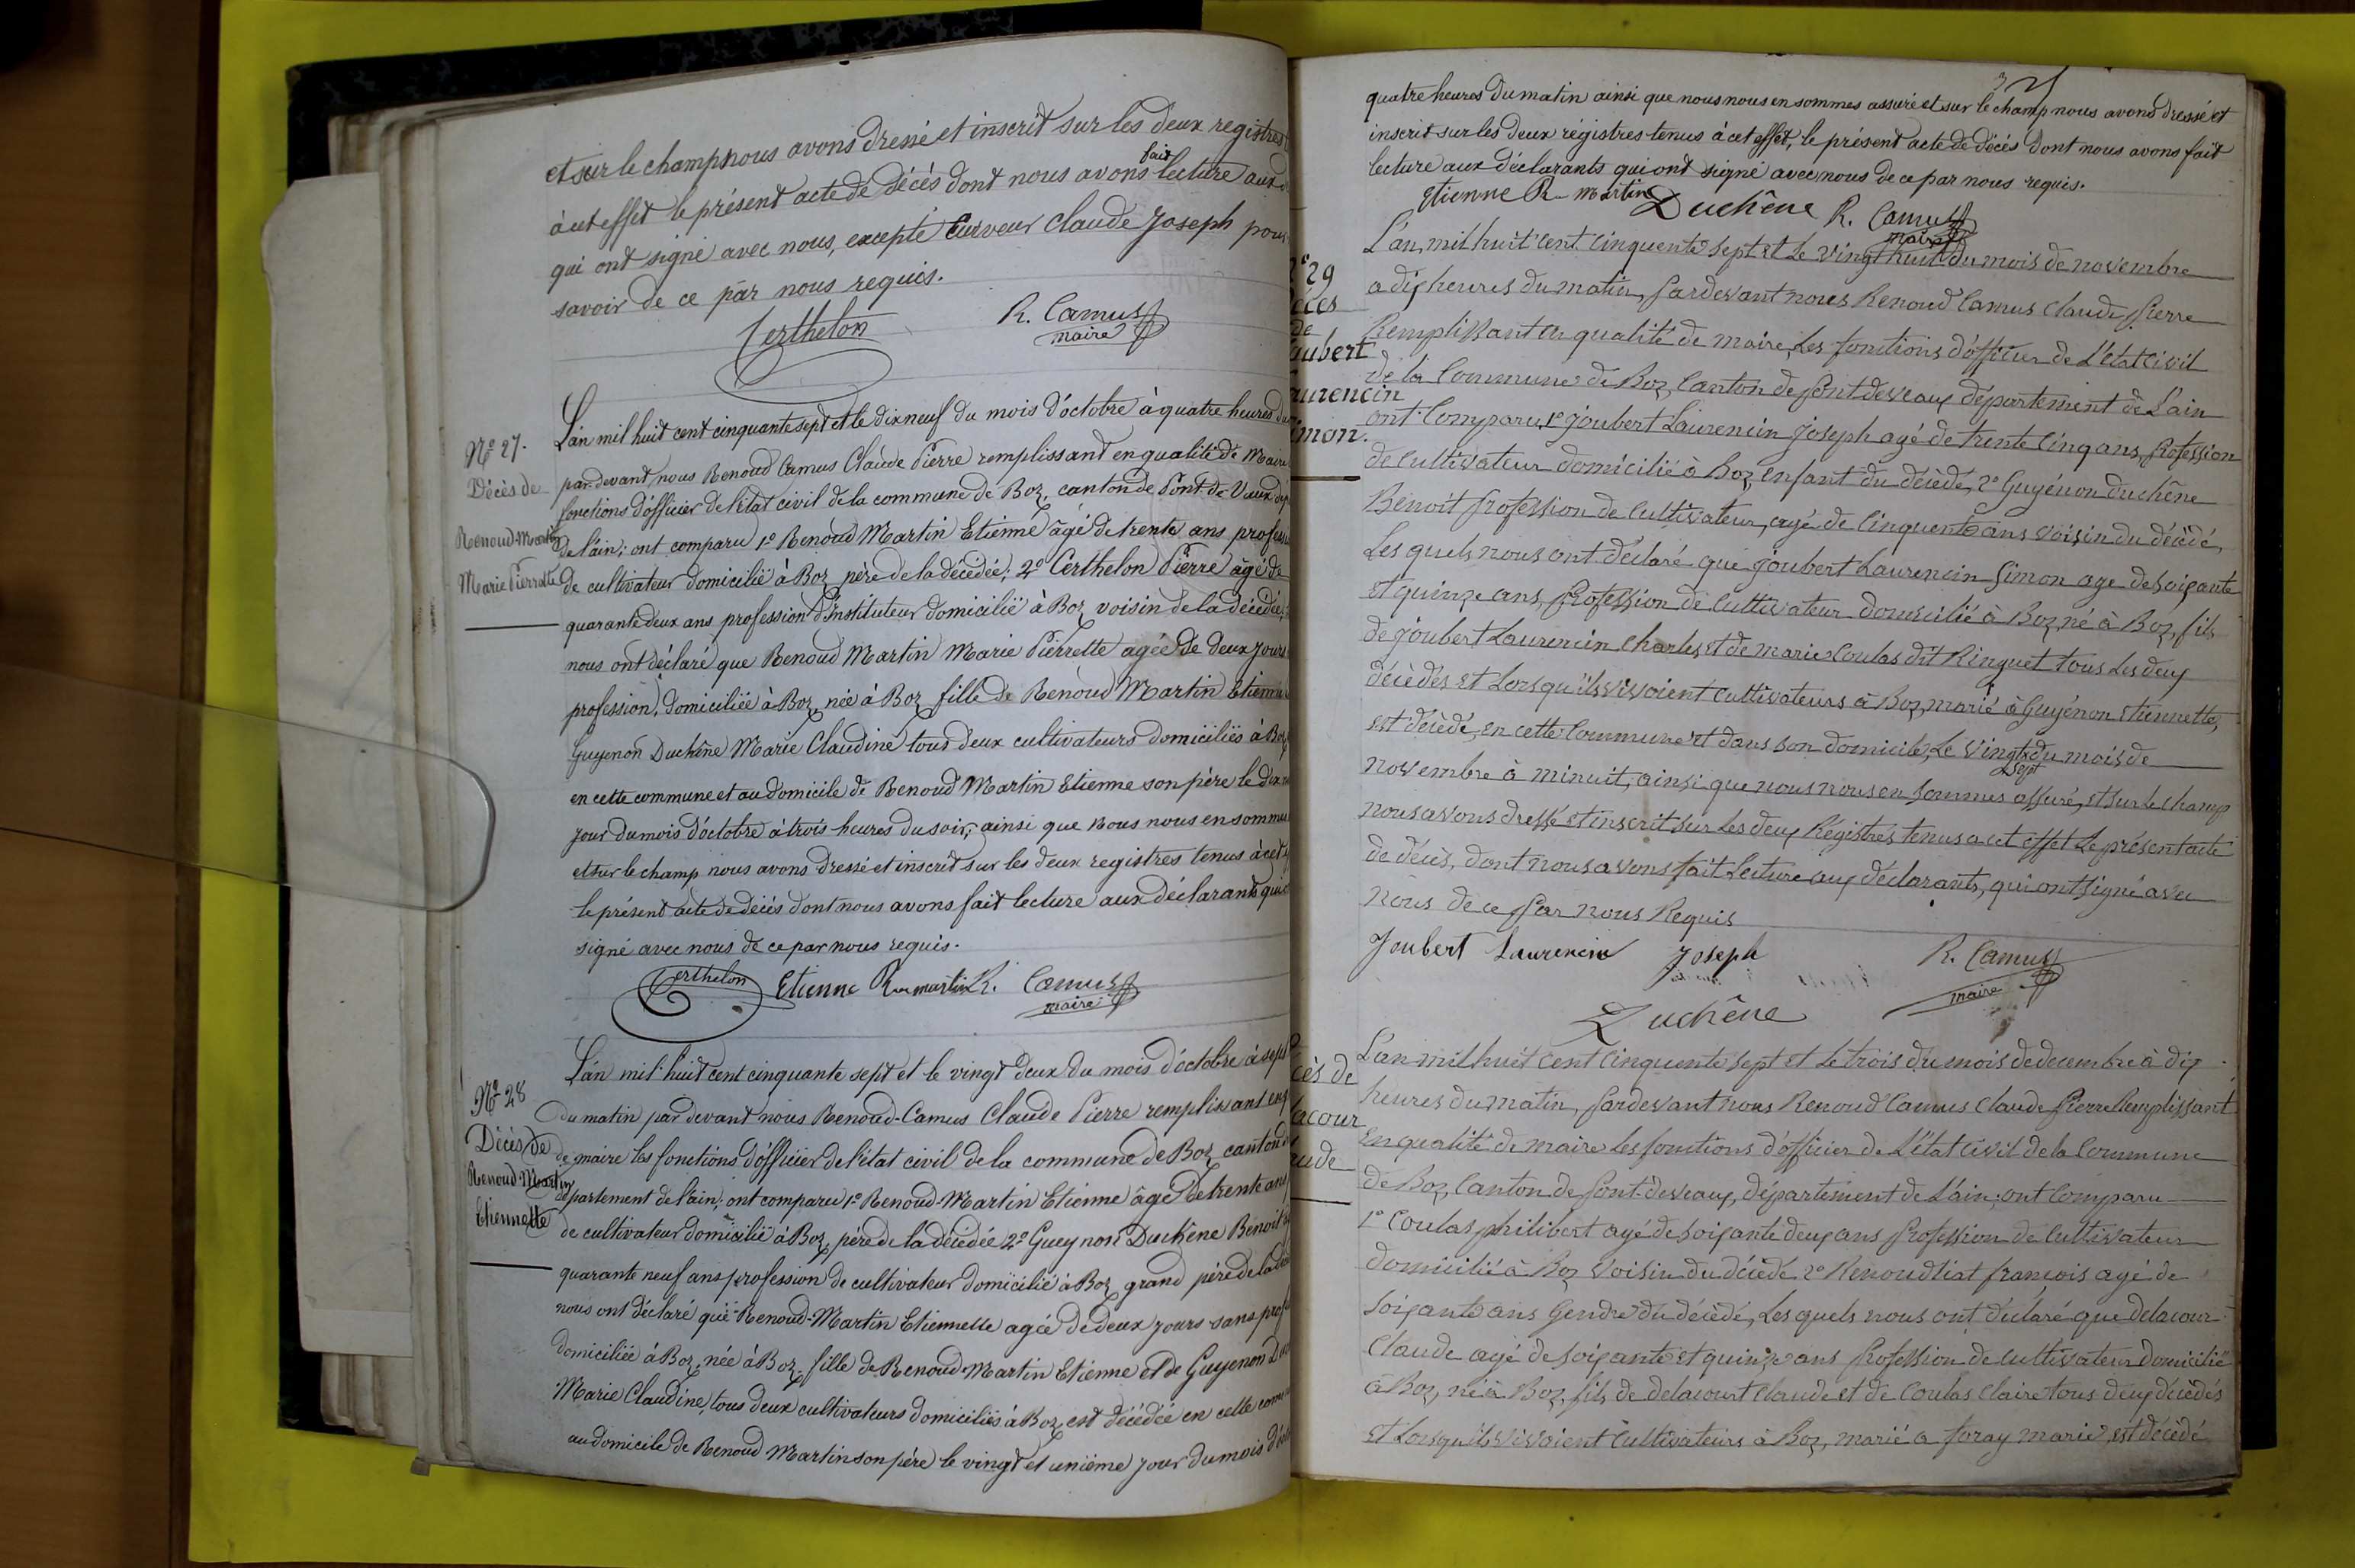 et sur le champ nous avons dressé et inscrit sur les deux registres
à cet effet le présent acte de décès dont nous avons fait lecture aux
qui ont signé avec nous, excepté Curveur Claude Joseph pour
savoir de ce par nous requis.
Certhelon R. Camus
maire
N° 27.
Décès de
Renoud-Martin
Marie Pierrette
L'an mil huit cent cinquante sept et le dix neuf du mois d'octobre à quatre heures du
par devant nous Renoud Camus Claude Pierre remplissant en qualité de Maire
fonctions d'officier de l'état civil de la commune de Boz, canton de Pont de Vaux dép
de l'ain; ont comparu 1° Renoud Martin Etienne âgé de trente ans profess
de cultivateur domicilié à Boz père de la décédée; 2° Certhelon Pierre âgé de
quarante deux ans profession d'Instituteur domicilié à Boz voisin de la décédée,
nous ont déclaré que Renoud Martin Marie Pierrette agée de deux jours
profession, domiciliée à Boz, née à Boz fille de Renoud Martin Etienne
Guyenon Duchêne Marie Claudine tous deux cultivateurs domiciliés à Boz
en cette commune et au domicile de Renoud Martin Etienne son père le dix
jour du mois d'octobre à trois heures du soir; ainsi que nous nous en sommes
et sur le champ nous avons dressé et inscrit sur les deux registres tenus à cet
le présent acte de décès dont nous avons fait lecture aux déclarants qui
signé avec nous de ce par nous requis.
Certhelon Etienne R martin R. Camus
maire
N° 28
Décès de
Renoud Martin
Etiennette
L'an mil huit cent cinquante sept et le vingt deux du mois d'octobre à sept
du matin par devant nous Renoud-Camus Claude Pierre remplissant en q
de maire les fonctions d'officier de l'état civil de la commune de Boz canton de
département de l'ain; ont comparu 1° Renoud-Martin Etienne âgé de trente ans
de cultivateur domicilié à Boz, père de la décédée 2° Gueynon Duchêne Benoit
quarante neuf ans profession de cultivateur domicilié à Boz grand père de la déc
nous ont déclaré que Renoud-Martin Etiennette agée de deux jours sans prof
domiciliée à Boz, née à Boz, fille de Renoud-Martin Etienne et de Guyenon Du
Marie Claudine, tous deux cultivateurs domiciliés à Boz, est décédée en cette comm
au domicile de Renoud Martin son père le vingt et unième jour du mois d'oct
quatre heures du matin ainsi que nous nous en sommes assuré et sur le champ nous avons dressé et
inscrit sur les deux régistres tenus à cet effet, le présent acte de décès dont nous avons fait
lecture aux déclarants qui ont signé avec nous de ce par nous requis.
Etienne R martin Duchêne R. Camus
maire
29
écès
de
oubert
aurencin
imon.
L'an mil huit cent cinquente sept et le vingt huit du mois de novembre
a dix heures du matin, pardevant nous Renoud Camus Claude Pierre
Remplissant en qualité de maire, les fonctions d'officier de L'état civil
de la Commune de Boz, Canton de pont devaux département de L'ain
ont Comparu, 1° joubert Laurencin joseph agé de trente cinq ans, Profession
de Cultivateur domicilié à Boz enfant du décédé, 2° Guyénon duchêne
Benoit profession de Cultivateur, agé de Cinquente ans voisin du décédé,
Les quels nous ont déclaré que joubert Laurencin Simon age de soixante
et quinze ans, Profession de Cultivateur domicilié à Boz né à Boz, fils
de joubert Laurencin Charles, et de marie Coulas dit Ringuet tous Les deux
décédés et Lorsqu'ils vivoient cultivateurs à Boz, marié à Guyénon etiennette,
est décédé, en cette Commune et dans son domicile, Le vingt du mois de
sept
novembre à minuit, ainsi que nous nous en sommes assuré, et sur le champ
nous avons dressé et inscrit sur Les deux Régistres tenus a cet effet Le présent acte
de décès, dont nous avons fait Lecture aux déclarants, qui ont signé avec
nous de ce par nous Requis
Joubert Laurencin Joseph R. Camus
maire
Duchêne
cès de
lacour
ude
L'an mil huit cent cinquente sept et Le trois du mois de decembre à dix
heures du matin, pardevant nous Renoud Camus Claude Pierre Remplissant
En qualité de maire Les fonctions d'officier de L'état civil de la Commune
de Boz, Canton de pont-devaux, département de L'ain, ont Comparu
1° Coulas philibert agé de soixante deux ans Profession de Cultivateur
domicilié à Boz voisin du décédé 2° Renoudliat françois agé de
soixante ans Gendre du décédé, Les quels nous ont déclaré que delacour
Claude agé de soixante et quinze ans Profession de Cultivateur domicilié
à Boz, né à Boz, fils de delacourt Claude et de Coulas Claire tous deux décédés
et Lorsqu'ils vivoient Cultivateurs à Boz, marié a foray marie, est décédé